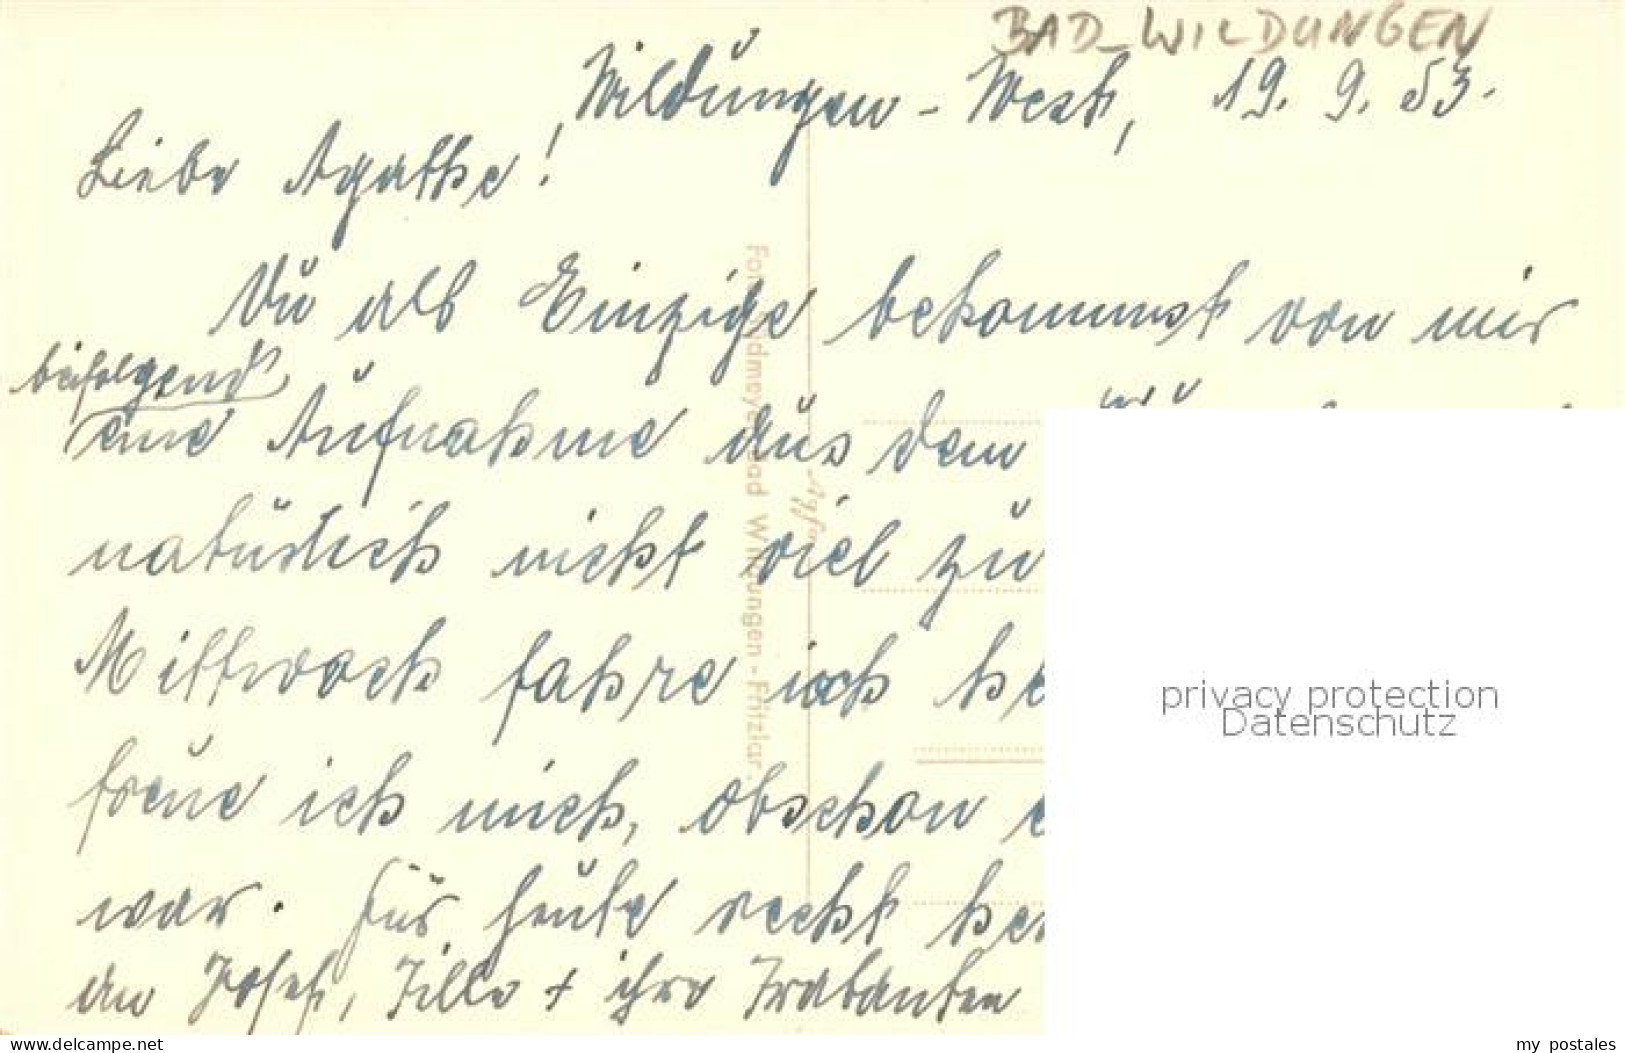 BAD-WILDUNGEN
Wildungen-West, 19. 9. 53.
Liebe Agathe!
Du als Einzige bekommst von mir
beifolgend
eine Aufnahme aus dem
natürlich nicht viel zu
Mittwoch fahre ich
freue ich mich, obschon
war. Für heute recht
an Josef, Tilla + ihre Trabanten
Bad Wildungen-Fritzlar.
Agfa
privacy protection
Datenschutz
www.delcampe.net
my postales